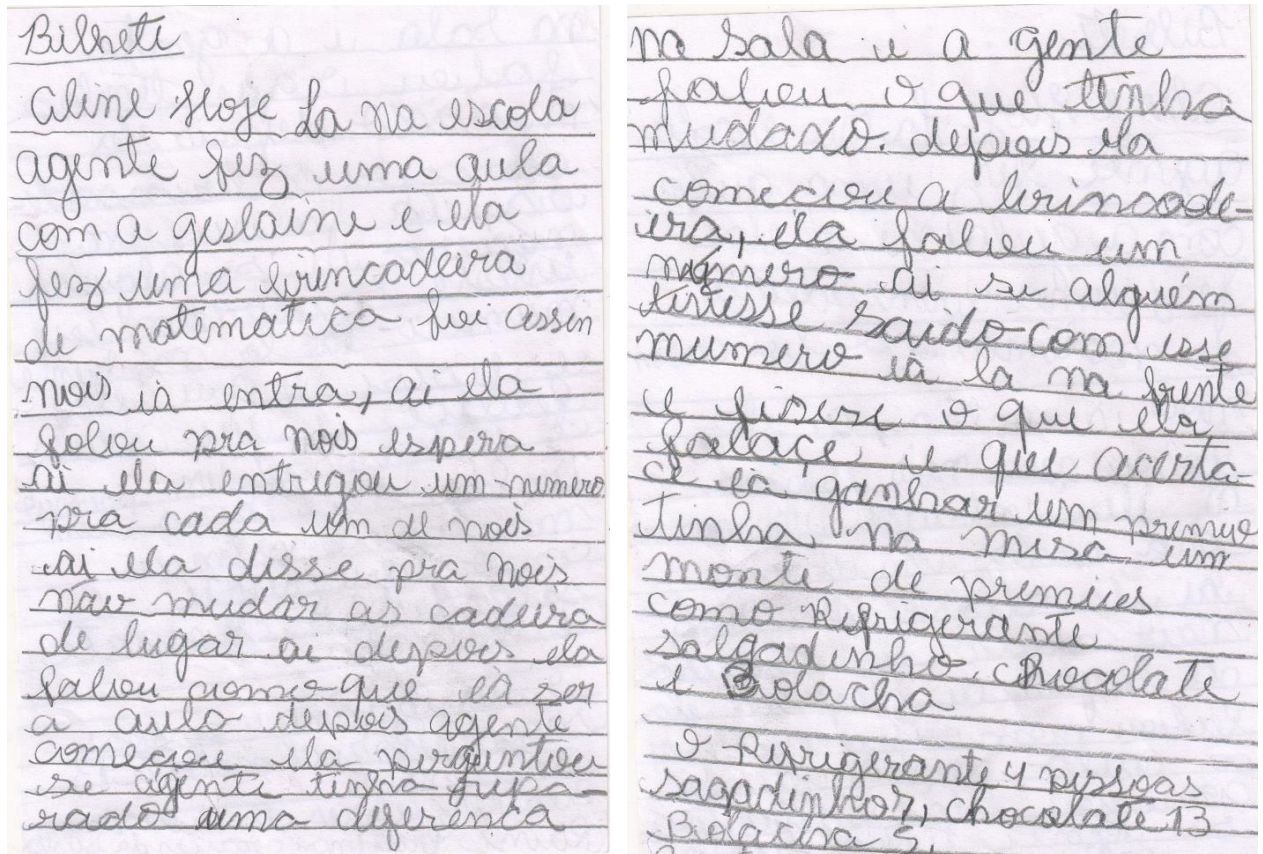 Bilhete
Aline Hoje La na escola
agente fez uma aula
com a geslaine e ela
fez uma brincadeira
de matematica foi assin
nois ia entra, ai ela
falou pra nois espera
ai ela entregou um numero
pra cada um de nois
ai ela disse pra nois
não mudar as cadeira
de lugar ai depois ela
falou como que ia ser
a aula depois agente
começou ela perguntou
se agente tinha
rado uma diferenca
na sala e a gente
falou o que tinha
mudado. depois ela
começou a brincade-
ira, ela falou um
número ai se alguém
tivesse saido com esse
numero ia la na frente
e fisese o que ela
falaçe e que acerta-
ce ia ganhar um premio
tinha na mesa um
monte de premios
como Refrigerante
salgadinho. chocolate
e Bolacha
o Refrigerante 4 pessoas
sagadinhor, chocolate 13
Bolacha 5.